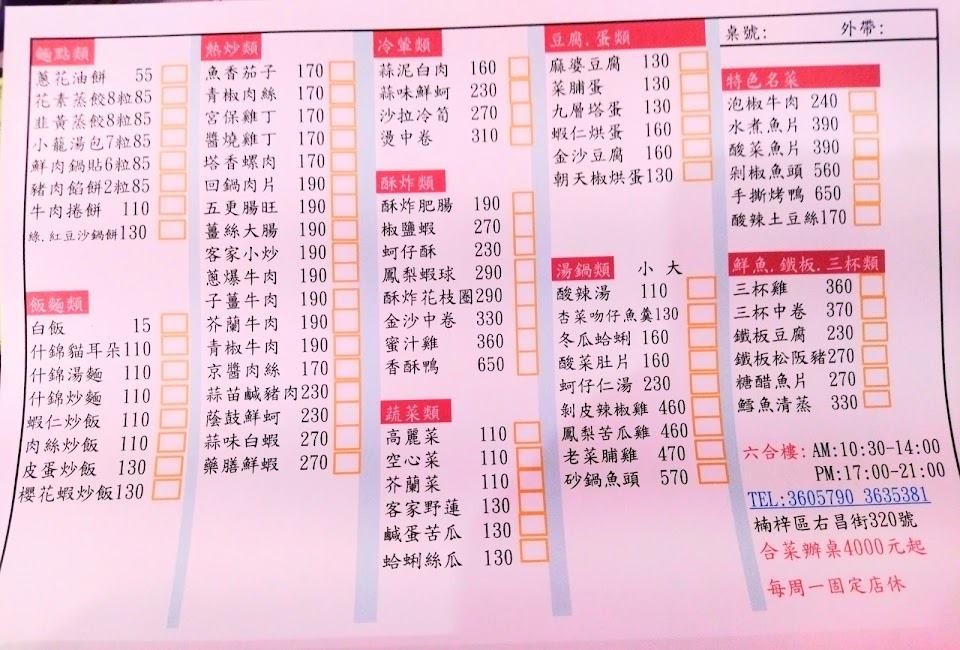 桌號: 外帶:
麵點類
蔥花油餅 55
花素蒸餃8粒85
韭黃蒸餃8粒85
小籠湯包7粒85
鮮肉鍋貼6粒85
豬肉餡餅2粒85
牛肉捲餅 110
綠.紅豆沙鍋餅130
飯麵類
白飯 15
什錦貓耳朵110
什錦湯麵 110
什錦炒麵 110
蝦仁炒飯 110
肉絲炒飯 110
皮蛋炒飯 130
櫻花蝦炒飯130
熱炒類
魚香茄子 170
青椒肉絲 170
宮保雞丁 170
醬燒雞丁 170
塔香螺肉 170
回鍋肉片 190
五更腸旺 190
薑絲大腸 190
客家小炒 190
蔥爆牛肉 190
子薑牛肉 190
芥蘭牛肉 190
青椒牛肉 190
京醬肉絲 170
蒜苗鹹豬肉230
蔭鼓鮮蚵 230
蒜味白蝦 270
藥膳鮮蝦 270
冷葷類
蒜泥白肉 160
蒜味鮮蚵 230
沙拉冷筍 270
燙中卷 310
酥炸類
酥炸肥腸 190
椒鹽蝦 270
蚵仔酥 230
鳳梨蝦球 290
酥炸花枝圈290
金沙中卷 330
蜜汁雞 360
香酥鴨 650
蔬菜類
高麗菜 110
空心菜 110
芥蘭菜 110
客家野蓮 130
鹹蛋苦瓜 130
蛤蜊絲瓜 130
豆腐.蛋類
麻婆豆腐 130
菜脯蛋 130
九層塔蛋 130
蝦仁烘蛋 160
金沙豆腐 160
朝天椒烘蛋130
湯鍋類 小 大
酸辣湯 110
杏菜吻仔魚羹130
冬瓜蛤蜊 160
酸菜肚片 160
蚵仔仁湯 230
剝皮辣椒雞 460
鳳梨苦瓜雞 460
老菜脯雞 470
砂鍋魚頭 570
特色名菜
泡椒牛肉 240
水煮魚片 390
酸菜魚片 390
剁椒魚頭 560
手撕烤鴨 650
酸辣土豆絲170
鮮魚.鐵板.三杯類
三杯雞 360
三杯中卷 370
鐵板豆腐 230
鐵板松阪豬270
糖醋魚片 270
鱈魚清蒸 330
六合樓: AM:10:30-14:00
PM:17:00-21:00
TEL:3605790 3635381
楠梓區右昌街320號
合菜辦桌4000元起
每周一固定店休